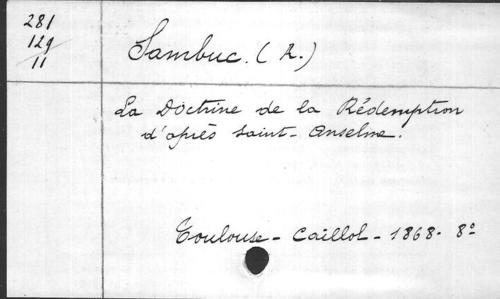 281
129
11
Sambuc. (A.)
La Doctrine de la Rédemption
d'après saint-Anselme.
Toulouse - Caillol - 1868 - 8°